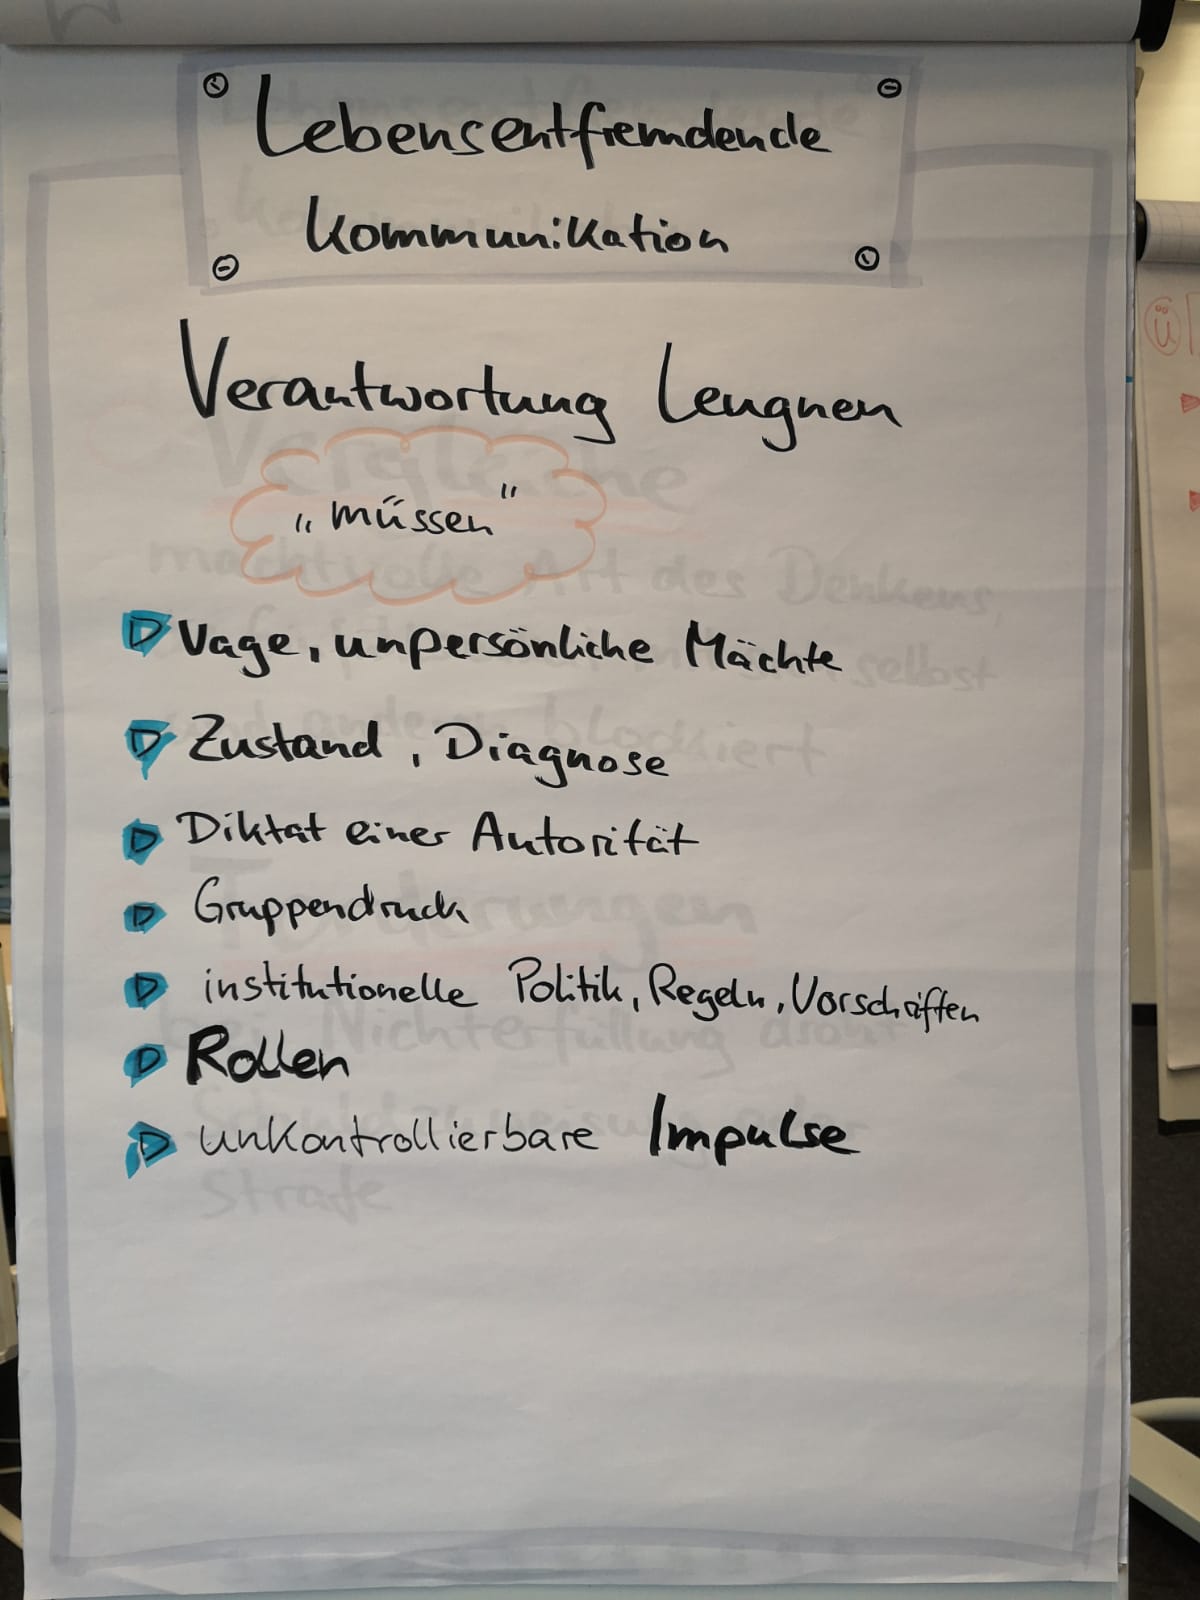 Lebensentfremdende
Kommunikation
Verantwortung leugnen
„müssen"
Vage, unpersönliche Mächte
Zustand, Diagnose
Diktat einer Autorität
Gruppendruck
institutionelle Politik, Regeln, Vorschriften
Rollen
unkontrollierbare Impulse